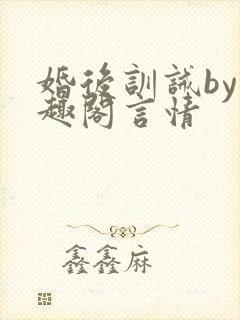 婚後訓誡by
趣閣言情
鑫鑫麻